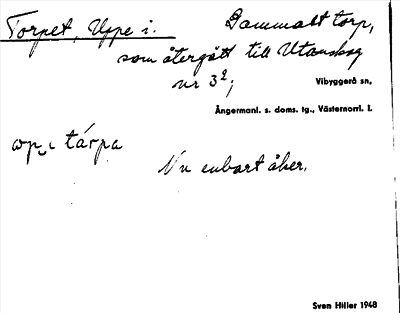 Torpet, Uppe i. Gammalt torp,
som återgått till Utanskog
nr 3²;
Vibyggerå sn,
Ångermanl. s. doms. tg., Västernorrl. l.
tárpa
Nu enbart åker.
Sven Hiller 1948